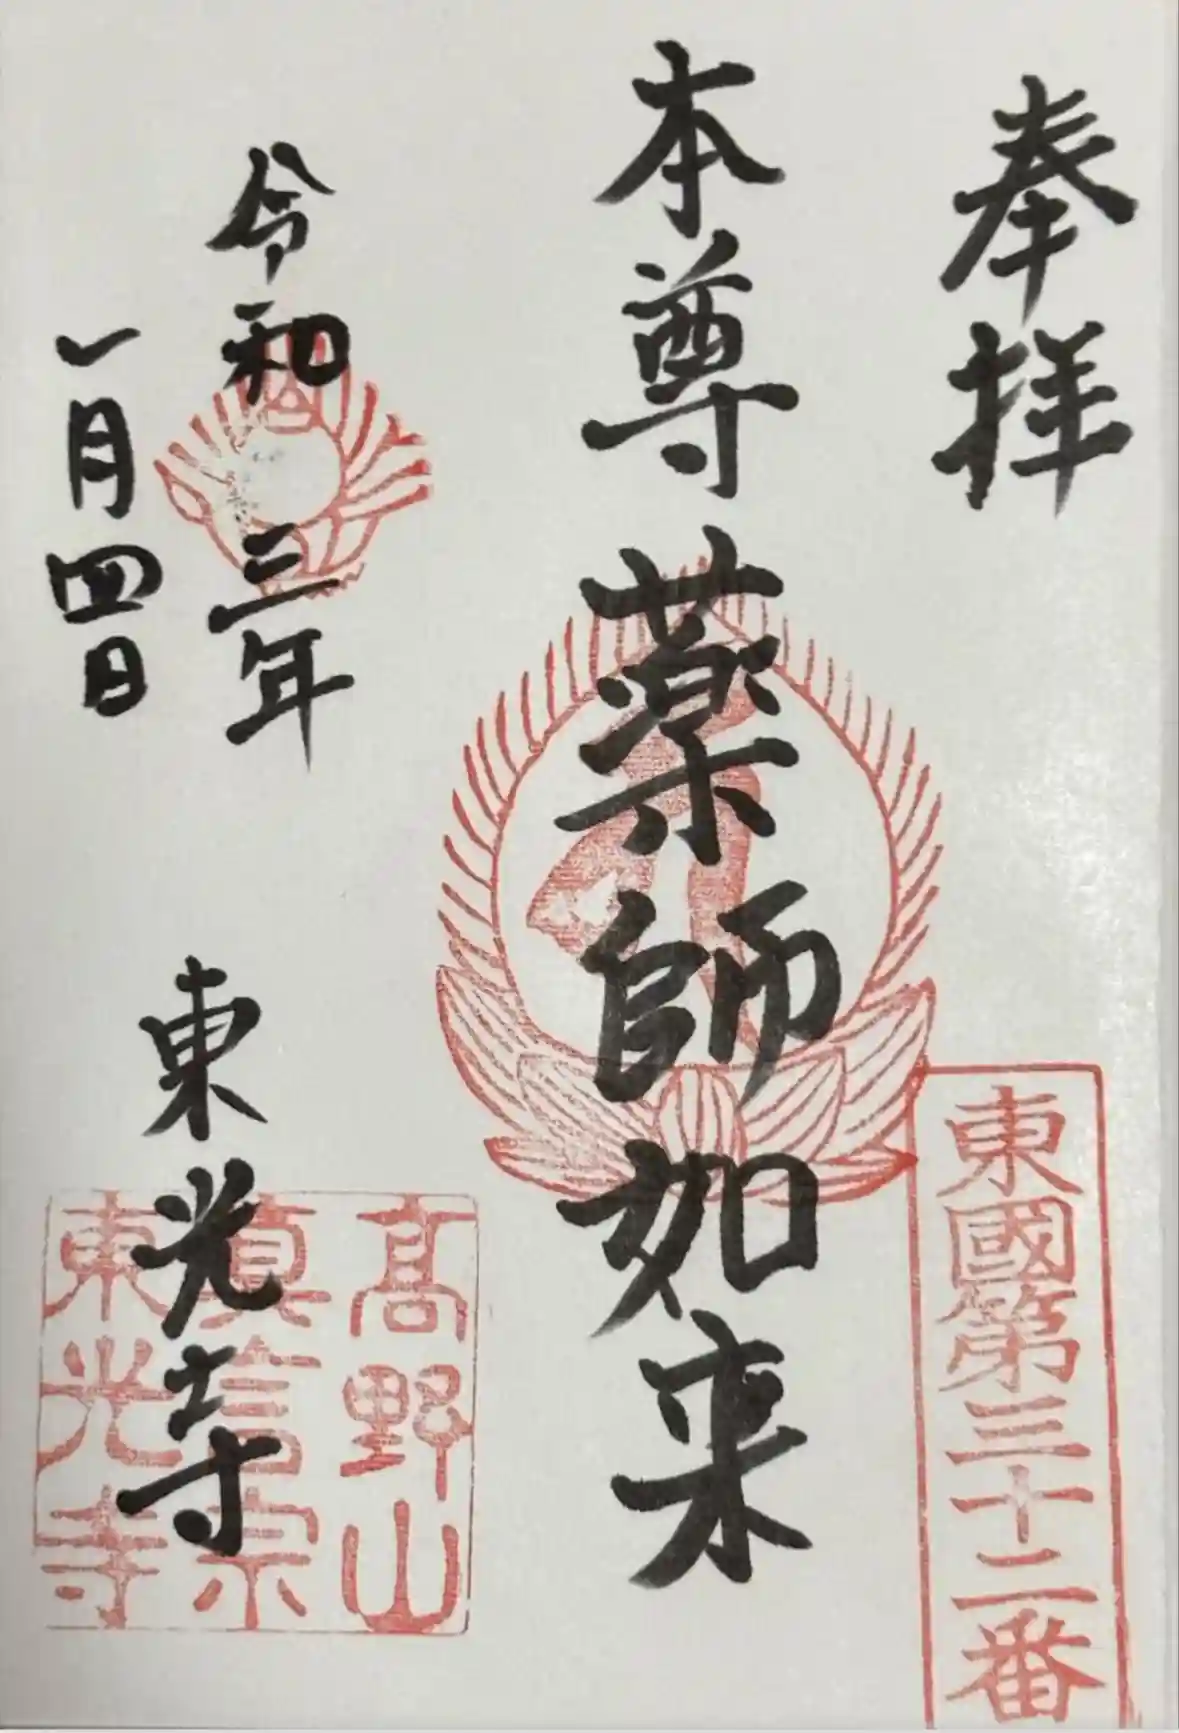 奉拝
東國第三十二番
本尊薬師如来
令和三年
一月四日
東光寺
高野山
真言宗
東光寺